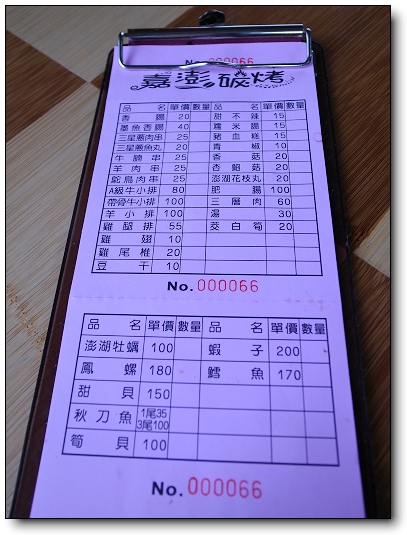 No. 000066
嘉澎碳烤
品名 單價 數量 品名 單價 數量
香腸 20 甜不辣 15
墨魚香腸 40 糯米腸 15
三星蔥肉串 25 豬血糕 15
三星蔥魚丸 20 青椒 10
牛腩串 25 香菇 20
羊肉串 25 杏鮑菇 20
鴕鳥肉串 25 澎湖花枝丸 20
A級牛小排 80 肥腸 100
帶骨牛小排 100 三層肉 60
羊小排 100 湯 30
雞腿排 55 茭白筍 20
雞翅 10
雞尾椎 20
豆干 10
No. 000066
品名 單價 數量 品名 單價 數量
澎湖牡蠣 100 蝦子 200
鳳螺 180 鱈魚 170
甜貝 150
秋刀魚 1尾35 3尾100
筍貝 100
No. 000066